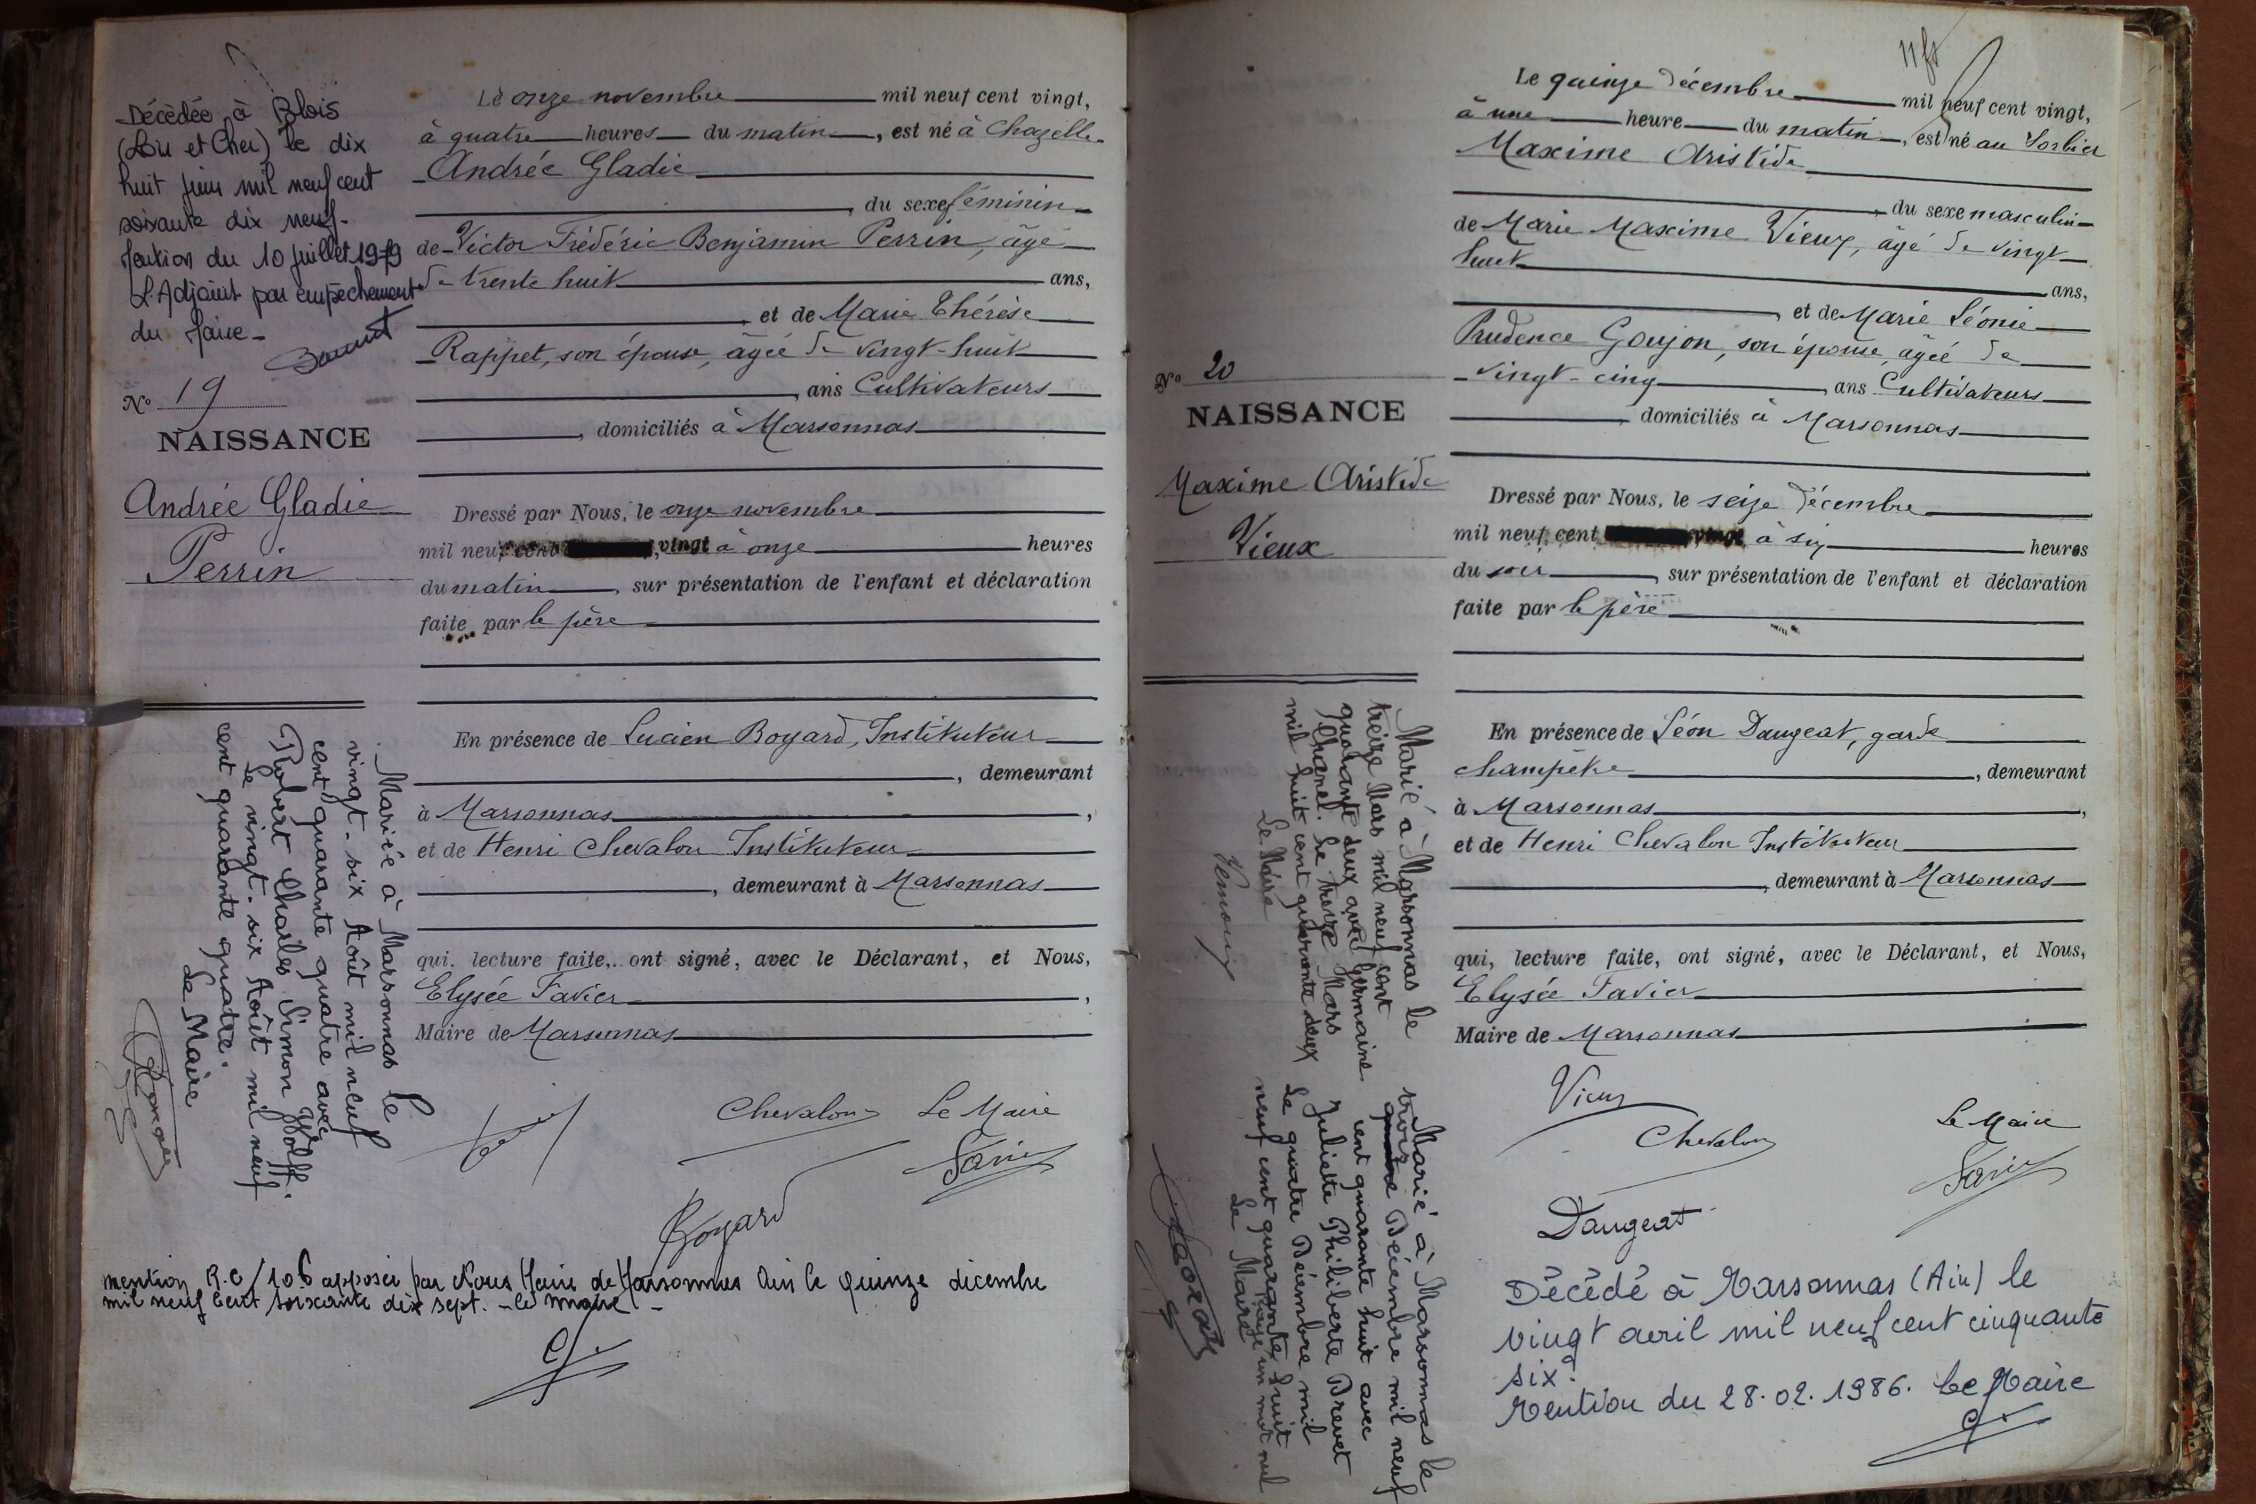 Décédée à Blois
(Loir et Cher) le dix
huit juin mil neuf cent
soixante dix neuf.
Mention du 10 juillet 1979
L'Adjoint par empêchement
du Maire
N° 19
NAISSANCE
Andrée Gladie
Perrin
Le onze novembre mil neuf cent vingt,
à quatre heures du matin, est né à Chazelle
Andrée Gladie
, du sexe féminin
de Victor Frédéric Benjamin Perrin, âgé
de trente huit ans,
et de Marie Thérèse
Rappet, son épouse, âgée de vingt-huit
, ans Cultivateurs
, domiciliés à Marsonnas
Dressé par Nous, le onze novembre
mil neuf cent vingt à onze heures
du matin, sur présentation de l'enfant et déclaration
faite par le père
En présence de Lucien Boyard, Instituteur
, demeurant
à Marsonnas,
et de Henri Chevalon Instituteur
, demeurant à Marsonnas
qui, lecture faite, ont signé, avec le Déclarant, et Nous,
Elysée Favier,
Maire de Marsonnas
Chevalon Le Maire
Favier
Boyard
Mariée à Marsonnas le
vingt-six Août mil neuf
cent quarante quatre avec
Robert Charles Simon Wolff.
Le vingt-six Août mil neuf
cent quarante quatre.
Le Maire
mention R.C/106 apposée par Nous Maire de Marsonnas Ain le quinze décembre
mil neuf cent soixante dix sept. - le maire -
11 fs
N° 20
NAISSANCE
Maxime Aristide
Vieux
Le quinze décembre mil neuf cent vingt,
à une heure du matin, est né au Sorbier
Maxime Aristide
, du sexe masculin
de Marie Maxime Vieux, âgé de vingt
huit ans,
, et de Marie Léonie
Prudence Goujon, son épouse, âgée de
vingt-cinq, ans Cultivateurs
domiciliés à Marsonnas
Dressé par Nous, le seize décembre
mil neuf cent vingt à six heures
du soir, sur présentation de l'enfant et déclaration
faite par le père
En présence de Léon Daugeat, garde
champêtre, demeurant
à Marsonnas,
et de Henri Chevalon Instituteur
, demeurant à Marsonnas
qui, lecture faite, ont signé, avec le Déclarant, et Nous,
Elysée Favier
Maire de Marsonnas
Vieux
Chevalon
Le Maire
Favier
Daugeat
Marié à Marsonnas le
treize Mars mil neuf cent
quarante deux avec Germaine
Chanel. Le treize Mars
mil huit cent quarante deux
Le Maire
Marié à Marsonnas le
trois Décembre mil neuf
cent quarante huit avec
Juliette Philiberte Brevet
Le quatre Décembre mil
neuf cent quarante huit
Rayé un mot nul
Le Maire
Décédé à Marsonnas (Ain) le
vingt avril mil neuf cent cinquante
six.
Mention du 28.02.1986. Le Maire